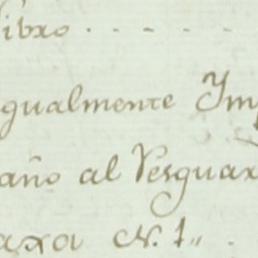 libro . . - - -
gualmente Ym
año al Resguar
ara N. 1,, .